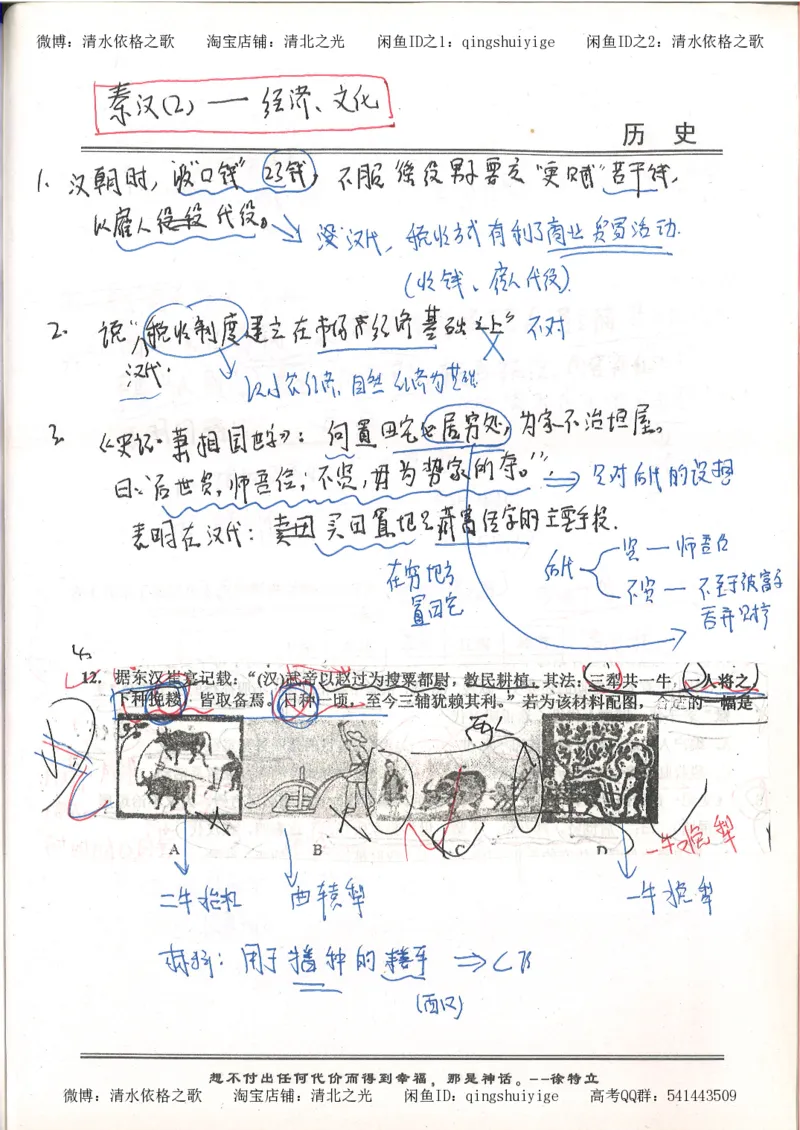 微博：清水依格之歌 淘宝店铺：清北之光 闲鱼ID之1：qingshuiyige 闲鱼ID之2：清水依格之歌
秦汉(2) — 经济、文化
历 史
1. 汉朝时，"口钱" 23钱，不服徭役男子要交"更赋"若干钱，
以雇人代役。
汉代，税收方式有利了商业贸易活动.
(收钱、雇人代役).
2. 说"税收制度建立在市场产经济基础之上" 不对
汉代.
以小农经济、自然经济为基础
3. 《史记·萧相国世家》：何置田宅必居穷处，为家不治垣屋。
曰："后世贤，师吾俭；不贤，毋为势家所夺。" ⇒ 只对后代的设想
表明在汉代：买田置地是藏富传家的主要手段.
在穷地方
置田宅
后代
贤 — 师吾俭
不贤 — 不至于被富家
吞并财产
4.
12. 据东汉崔寔记载："(汉)武帝以赵过为搜粟都尉，教民耕植。其法：三犁共一牛，一人将之，
下种挽耧，皆取备焉。日种一顷，至今三辅犹赖其利。"若为该材料配图，合适的一幅是
两人
A B C D
一牛挽犁
二牛抬杠 曲辕犁 一牛挽犁
耧车：用于播种的耧车
(西汉)
想不付出任何代价而得到幸福，那是神话。--徐特立
微博：清水依格之歌 淘宝店铺：清北之光 闲鱼ID：qingshuiyige 高考QQ群：541443509